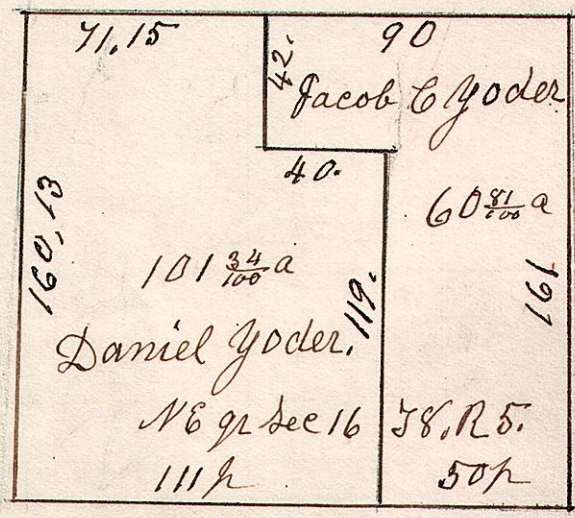 71,15
90
42.
Jacob C Yoder
40.
160,13
60 81/100 a
101 34/100 a
161
119.
Daniel Yoder.
NE qr Sec 16 T8. R5.
111 p
50 p